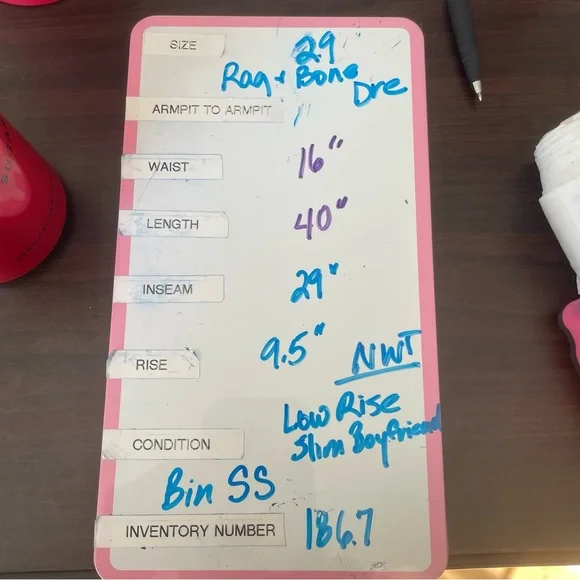 SIZE 29
Rag + Bone
Dre
ARMPIT TO ARMPIT "
WAIST 16"
LENGTH 40"
INSEAM 29"
RISE 9.5" NWT
Low Rise
CONDITION Slim Boyfriend
Bin SS
INVENTORY NUMBER 186.7